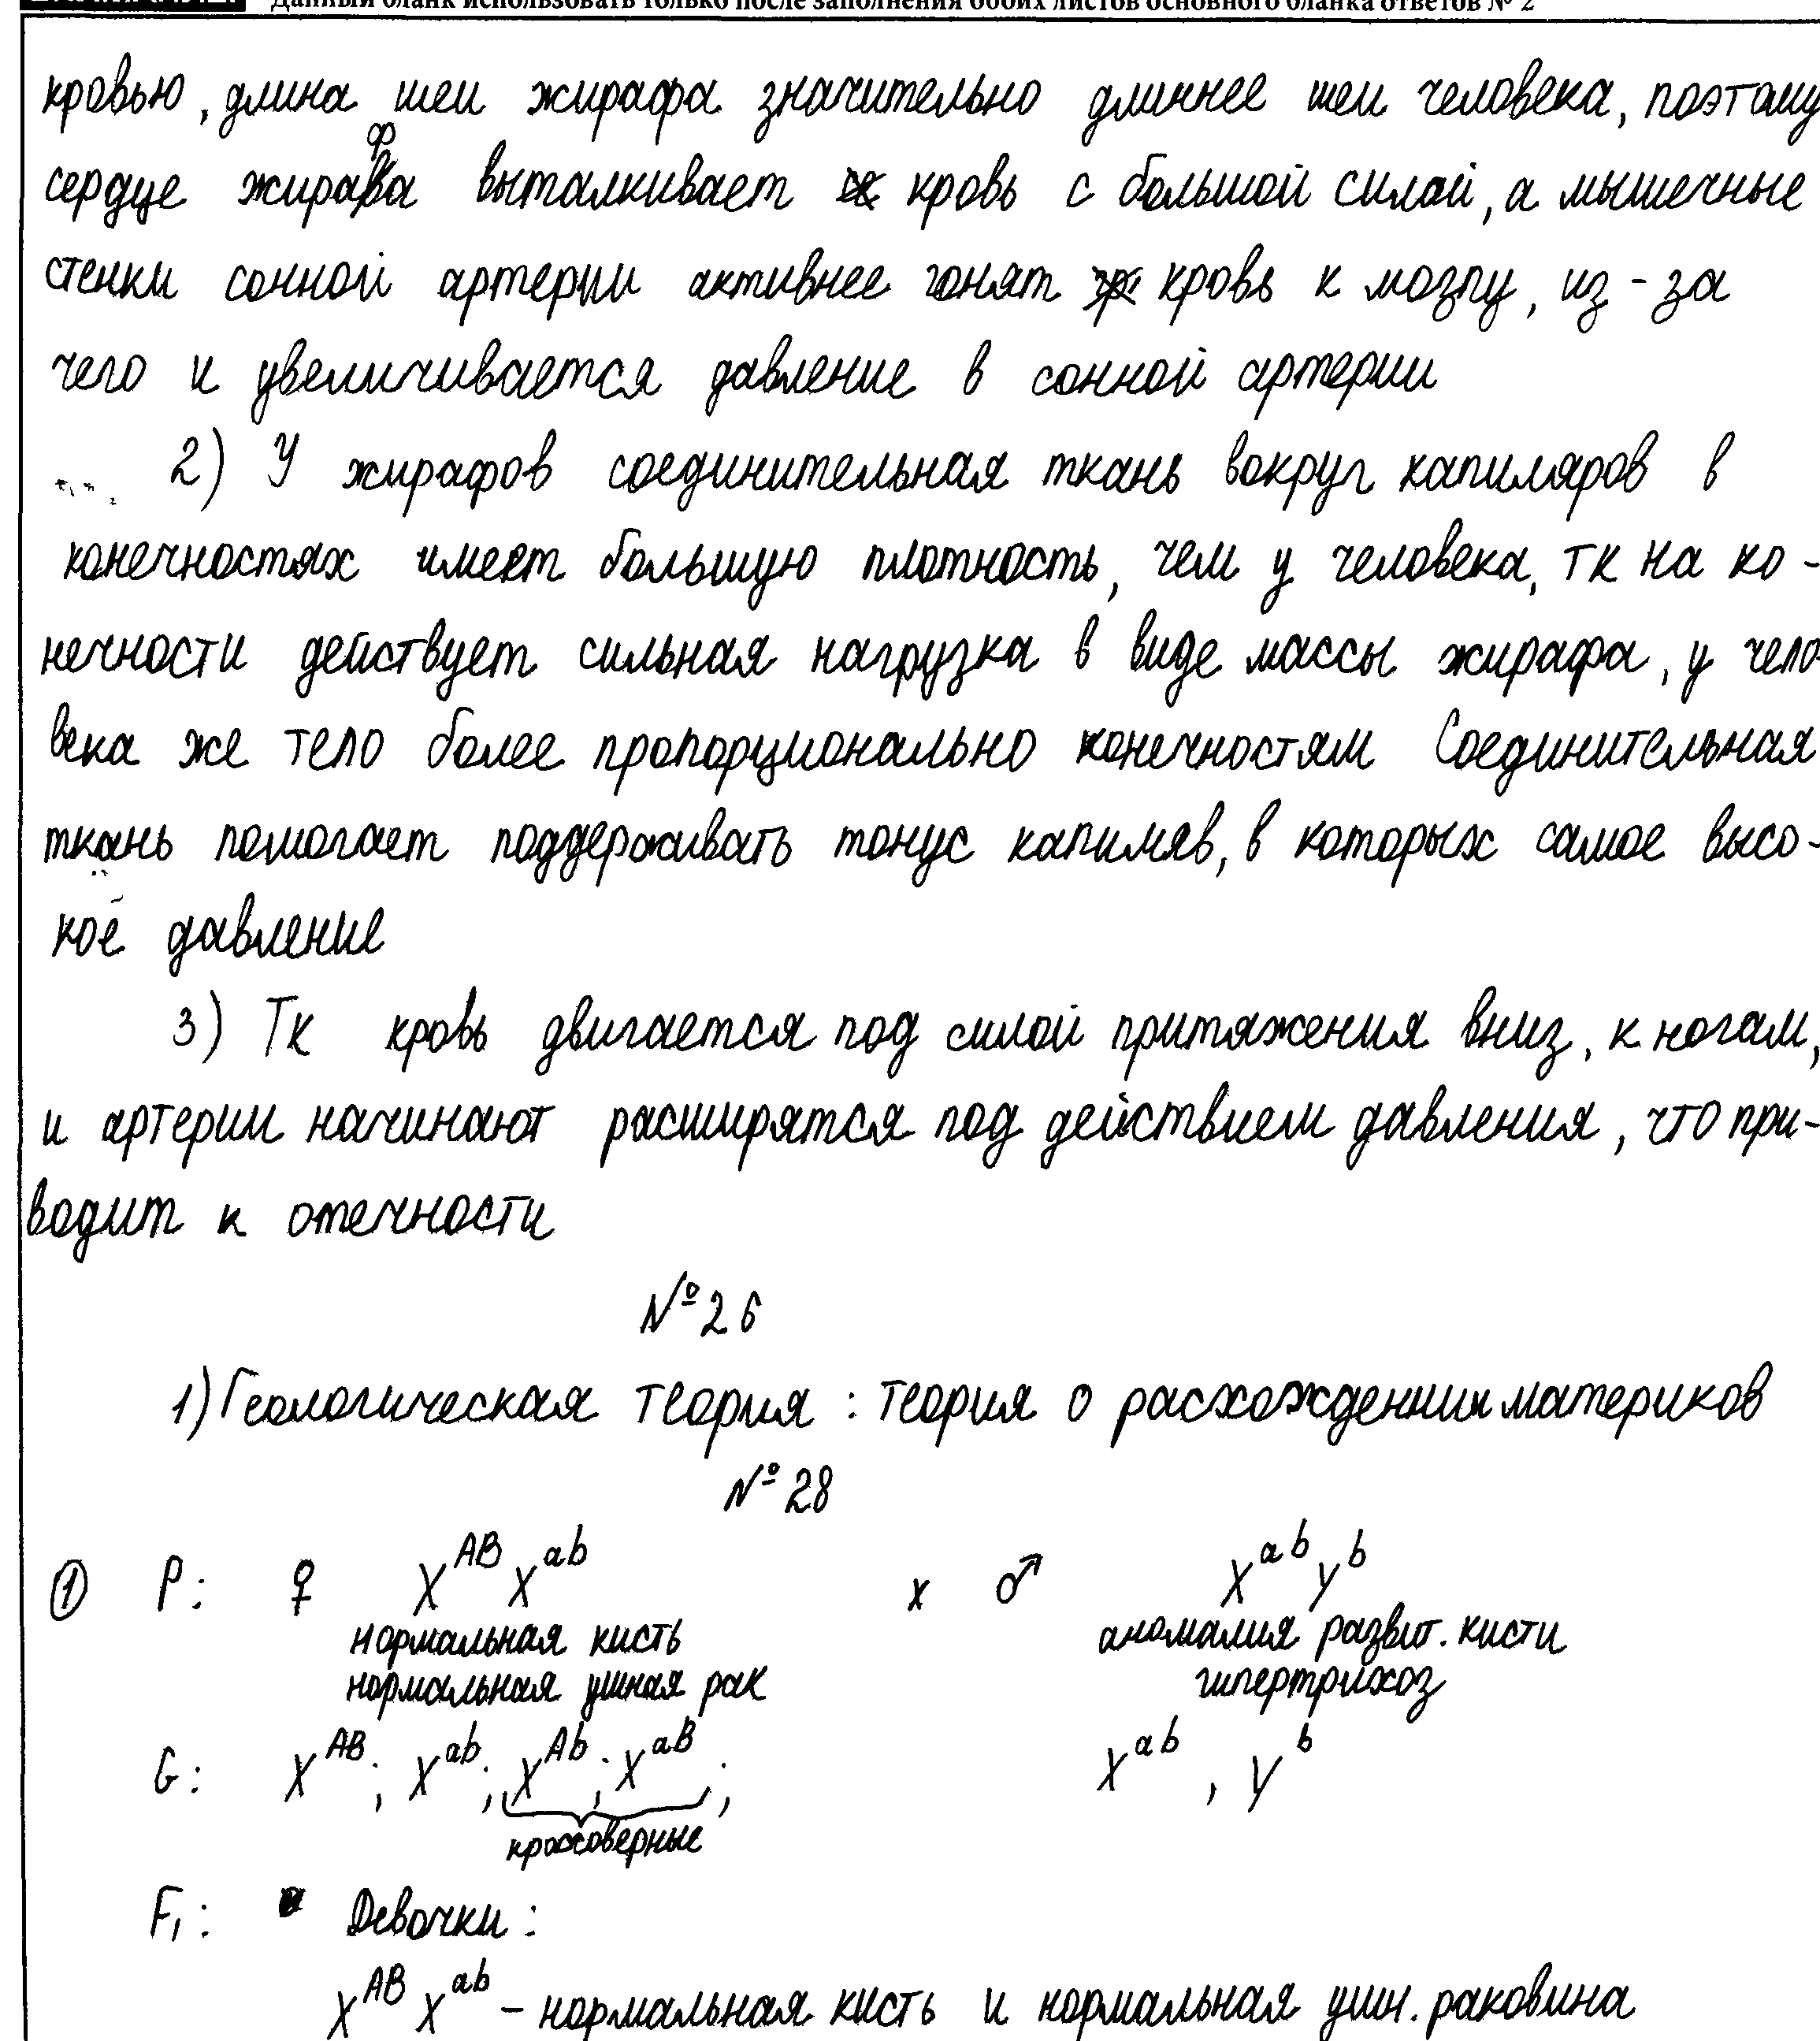 Данный бланк использовать только после заполнения обоих листов основного бланка ответов № 2
кровью, длина шеи жирафа значительно длиннее шеи человека, поэтому
сердце жирафа выталкивает кровь с большой силой, а мышечные
стенки сонной артерии активнее гонят кровь к мозгу, из-за
чего и увеличивается давление в сонной артерии
2) У жирафов соединительная ткань вокруг капиляров в
конечностях имеет большую плотность, чем у человека, тк на ко-
нечности действует сильная нагрузка в виде массы жирафа, у чело-
века же тело более пропорционально конечностям Соединительная
ткань помогает поддерживать тонус капиляв, в которых самое высо-
кое давление
3) Тк кровь двигается под силой притяжения вниз, к ногам,
и артерии начинают расширятся под действием давления, что при-
водит к отечности
№26
1) Геологическая теория: теория о расхождении материков
№28
① P: ♀ X^AB X^ab x ♂ X^ab Y^b
нормальная кисть аномалия развит. кисти
нормальная ушная рак гипертрихоз
G: X^AB; X^ab; X^Ab; X^aB; X^ab, Y^b
кроссоверные
F₁: Девочки:
X^AB X^ab – нормальная кисть и нормальная ушн. раковина